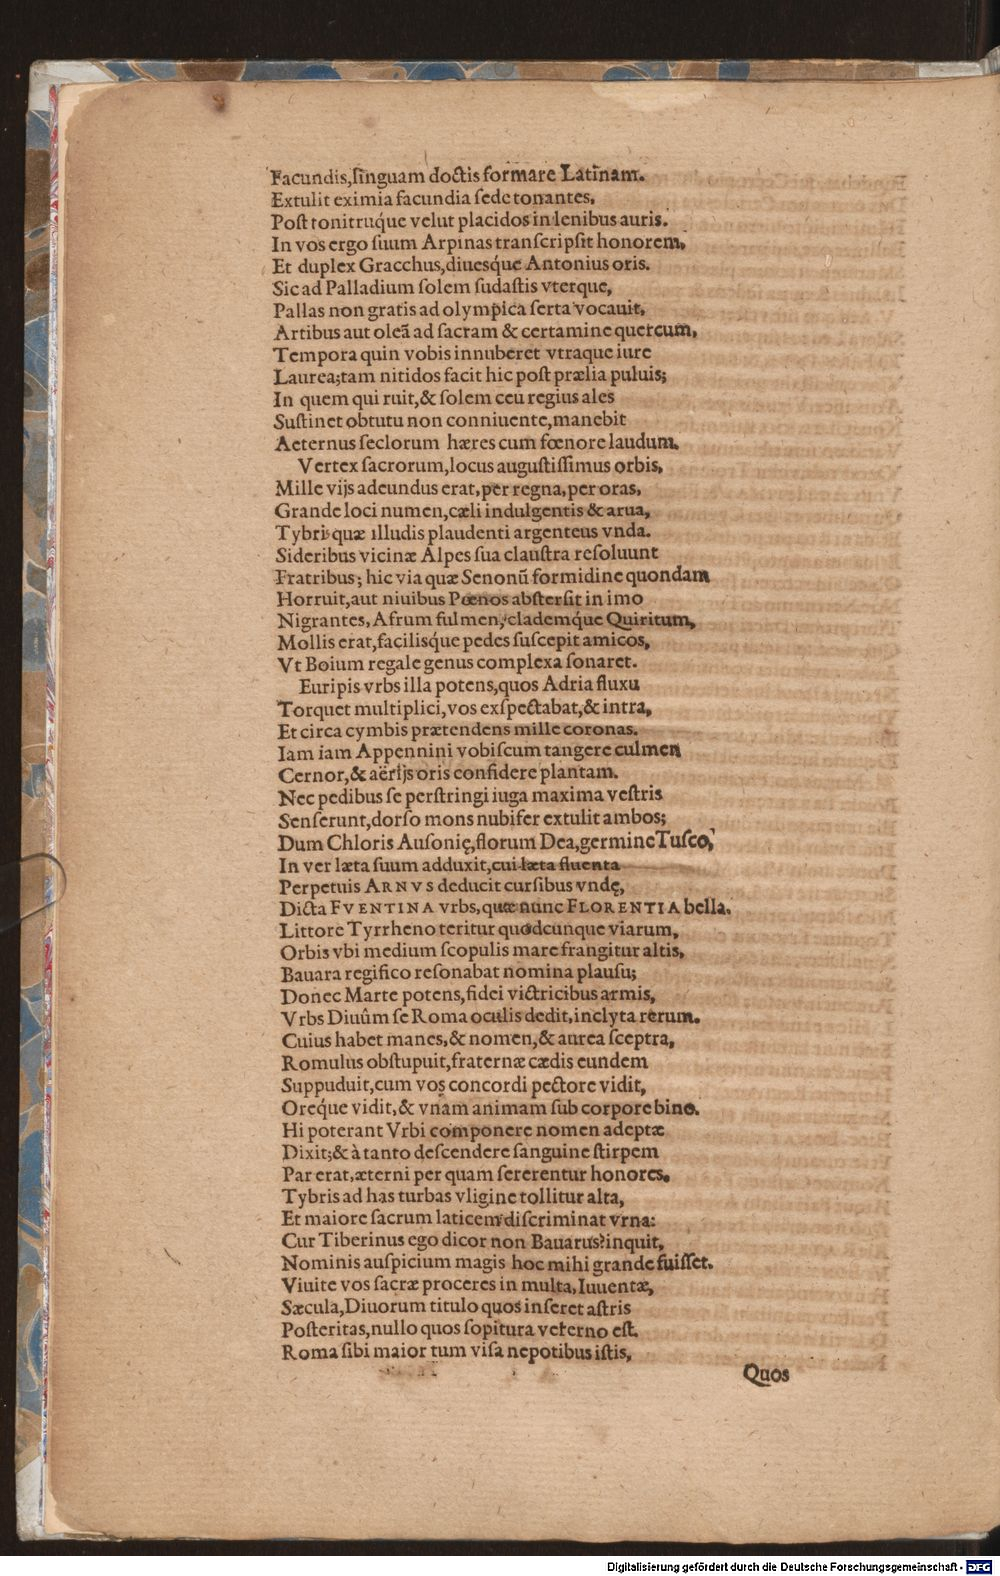 Facundis,linguam doctis formare Latinam.
Extulit eximia facundia ſede tonantes,
Poſt tonitruq́ue velut placidos in lenibus auris.
In vos ergo ſuum Arpinas tranſcripſit honorem,
Et duplex Gracchus,diuesq́ue Antonius oris.
Sic ad Palladium ſolem ſudaſtis vterque,
Pallas non gratis ad olympica ſerta vocauit,
Artibus aut oleā ad ſacram & certamine quercum,
Tempora quin vobis innuberet vtraque iure
Laurea;tam nitidos facit hic poſt prælia puluis;
In quem qui ruit,& ſolem ceu regius ales
Suſtinet obtutu non conniuente,manebit
Aeternus ſeclorum hæres cum fœnore laudum.
Vertex ſacrorum,locus auguſtiſſimus orbis,
Mille vijs adeundus erat,per regna,per oras,
Grande loci numen,cæli indulgentis & arua,
Tybris quæ illudis plaudenti argenteus vnda.
Sideribus vicinæ Alpes ſua clauſtra reſoluunt
Fratribus; hic via quæ Senonū formidine quondam
Horruit,aut niuibus Pœnos abſterſit in imo
Nigrantes, Afrum fulmen, clademq́ue Quiritum,
Mollis erat,facilisq́ue pedes ſuſcepit amicos,
Vt Boium regale genus complexa ſonaret.
Euripis vrbs illa potens,quos Adria fluxu
Torquet multiplici,vos exſpectabat,& intra,
Et circa cymbis prætendens mille coronas.
Iam iam Appennini vobiſcum tangere culmen
Cernor,& aërijs oris confidere plantam.
Nec pedibus ſe perſtringi iuga maxima veſtris
Senſerunt,dorſo mons nubifer extulit ambos;
Dum Chloris Auſonię,florum Dea,germine Tuſco,
In ver læta ſuum adduxit,cui læta fluenta
Perpetuis ARNVS deducit curſibus vndę,
Dicta FVENTINA vrbs,quæ nunc FLORENTIA bella.
Littore Tyrrheno teritur quodcunque viarum,
Orbis vbi medium ſcopulis mare frangitur altis,
Bauara regifico reſonabat nomina plauſu;
Donec Marte potens,fidei victricibus armis,
Vrbs Diuûm ſe Roma oculis dedit,inclyta rerum.
Cuius habet manes,& nomen,& aurea ſceptra,
Romulus obſtupuit,fraternæ cædis eundem
Suppuduit,cum vos concordi pectore vidit,
Oreq́ue vidit,& vnam animam ſub corpore bino.
Hi poterant Vrbi componere nomen adeptæ
Dixit;& à tanto deſcendere ſanguine ſtirpem
Par erat,æterni per quam ſererentur honores.
Tybris ad has turbas vligine tollitur alta,
Et maiore ſacrum laticem diſcriminat vrna:
Cur Tiberinus ego dicor non Bauarus?inquit,
Nominis auſpicium magis hoc mihi grande fuiſſet.
Viuite vos ſacræ proceres in multa,Iuuentæ,
Sæcula,Diuorum titulo quos inſeret aſtris
Poſteritas,nullo quos ſopitura veterno eſt.
Roma ſibi maior tum viſa nepotibus iſtis,
Quos
Digitalisierung gefördert durch die Deutsche Forschungsgemeinschaft - DFG